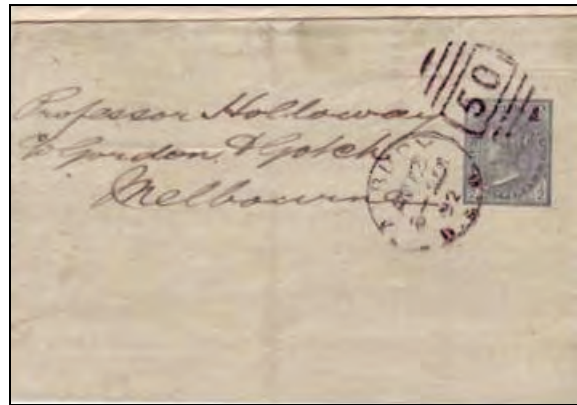 Professor Holloway
c/o Gordon & Gotch
Melbourne
50